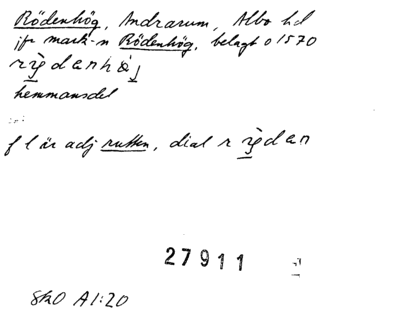 Rödenhög, Andrarum, Albo hd
jfr mark-n Rödenhög, belagt o 1570
hemmansdel
f l är adj rutten, dial
27911
SkO A1:20